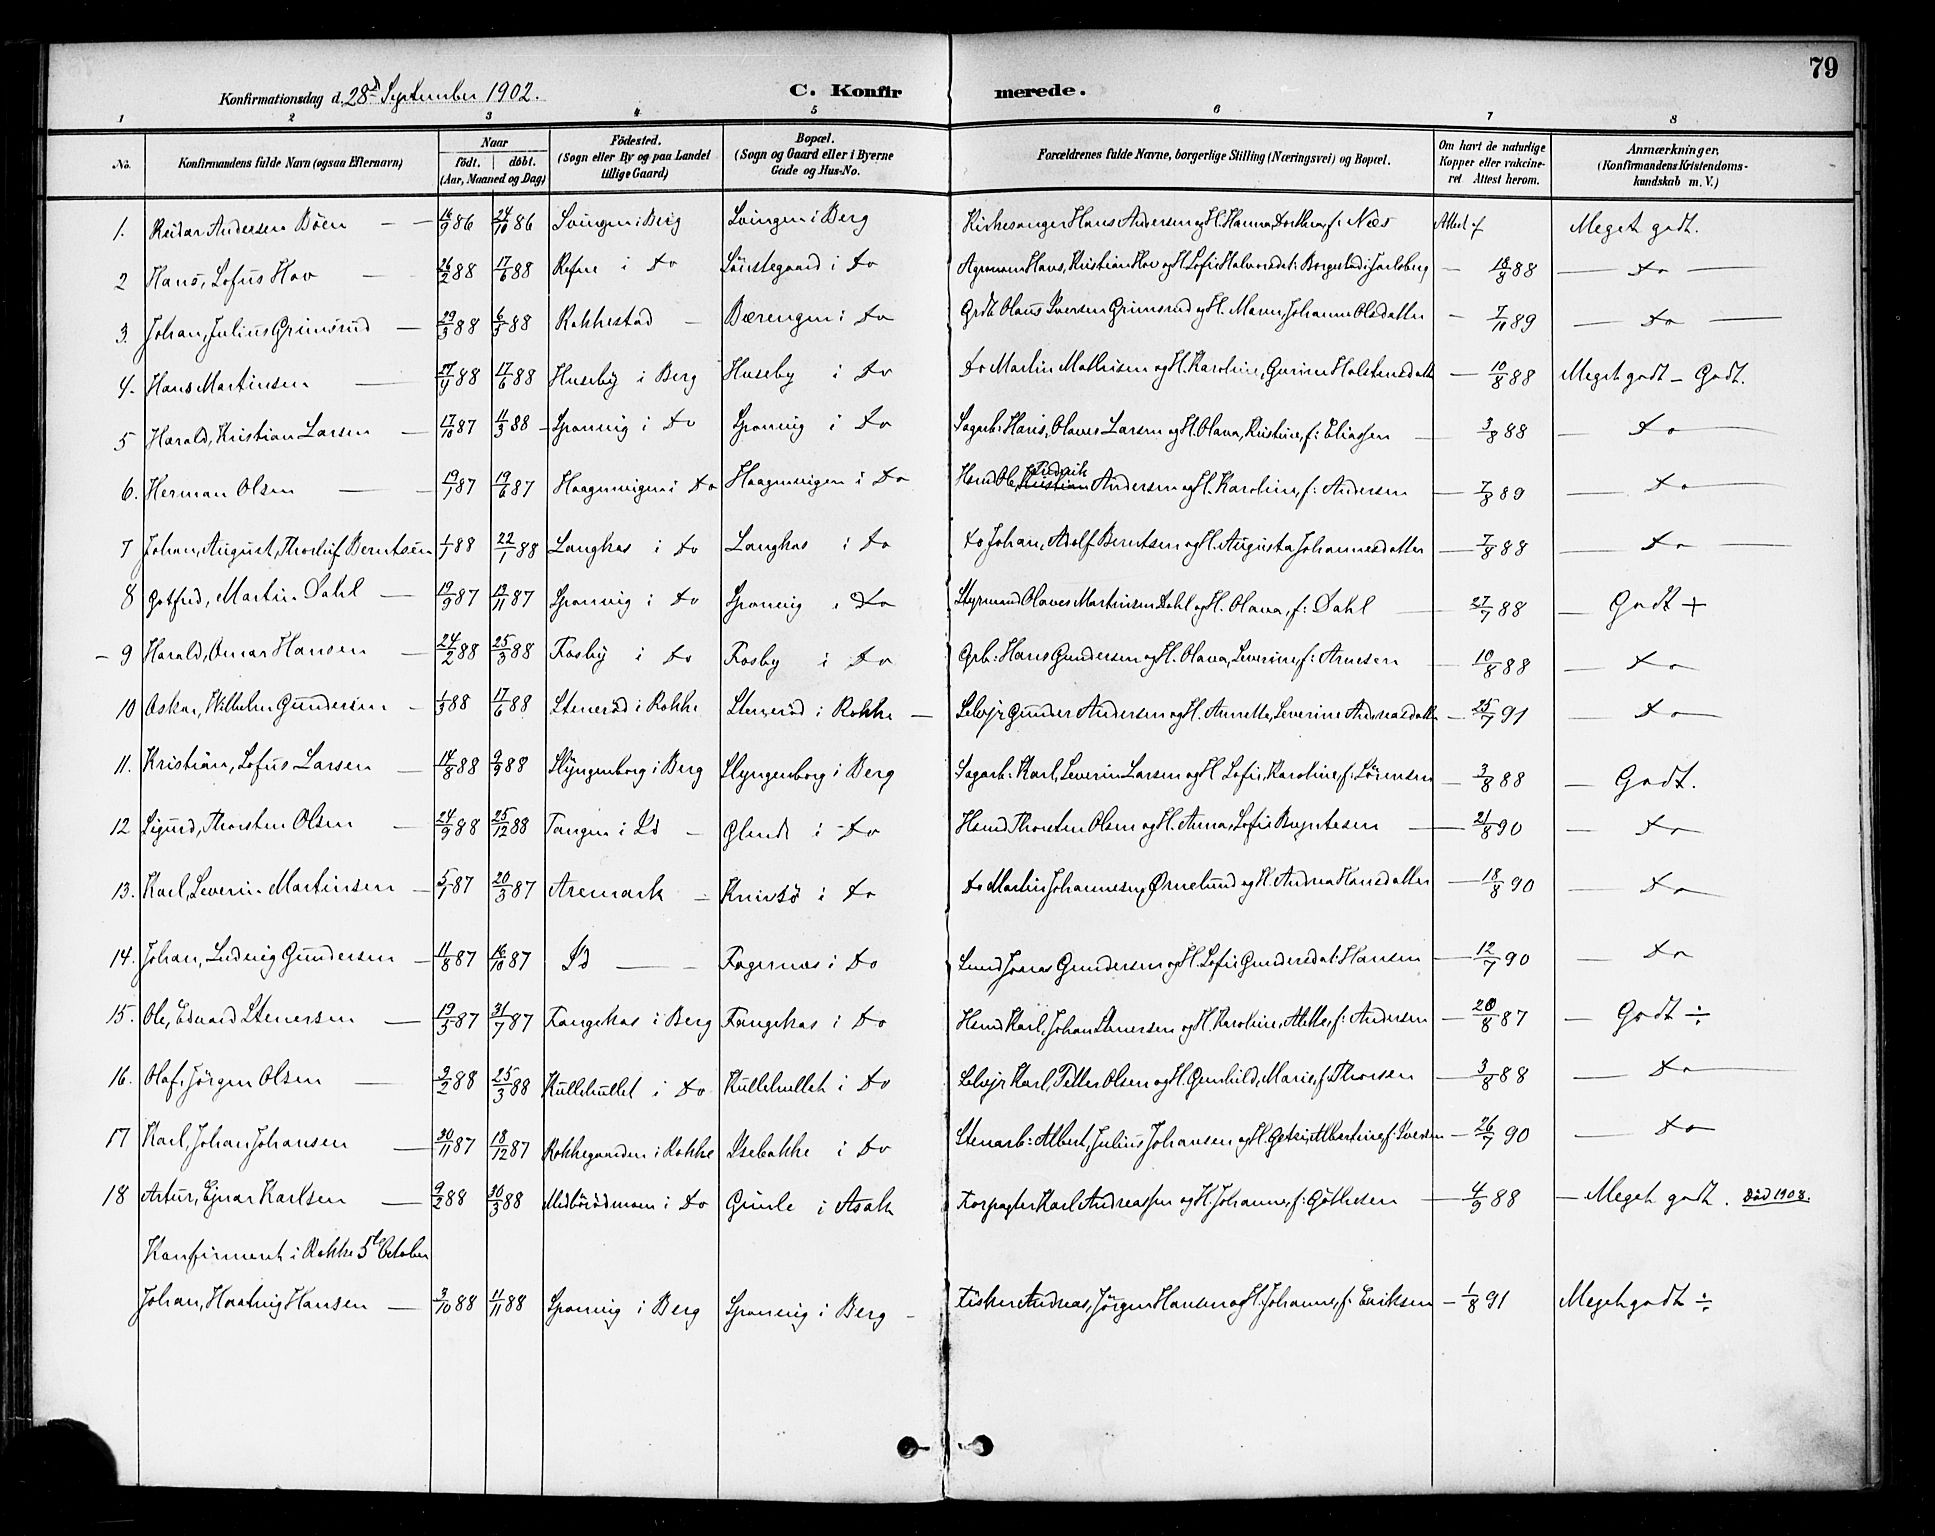 79
Konfirmationsdag d. 28d September 1902. C. Konfirmerede.
1 2 3 4 5 6 7 8
No. Konfirmandens fulde Navn (ogsaa Efternavn) Naar født. døbt. (Aar, Maaned og Dag) Fødested. (Sogn eller By og paa Landet tillige Gaard) Bopæl. (Sogn og Gaard eller i Byerne Gade og Hus-No. Forældrenes fulde Navne, borgerlige Stilling (Næringsvei) og Bopæl. Om havt de naturlige Kopper eller vakcineret Attest herom. Anmærkninger, (Konfirmandens Kristendomskundskab m. V.)
1. Reidar Andersen Böen — 16/9 86 24/10 86 Svingen i Berg Svingen i Berg Kirkesanger Hans Andersen og H. Hanna Dorthea, f: Næs Attest f Meget godt.
2 Hans, Sofus Hov — 26/2 88 17/6 88 i Do i Do Agronom Hans, Kristian Hov og H. Sofie Halvorsdat: Borgestad i Jarlsberg — 18/8 88 — Do —
3. Johan, Julius Grimsrud — 29/3 88 6/5 88 Rakkestad — Bærengen i Do Grdb Olaus Iversen Grimsrud og H. Maren, Johanne Olsdatter — 7/11 89 — Do —
4. Hans Martinsen — 27/4 88 17/6 88 Huseby i Berg Huseby i Do Do Martin Mathisen og H. Karoline, Gurine Holstensdatt — 10/8 88 Meget godt — Godt.
5 Harald, Kristian Larsen — 17/10 87 11/3 88 — Sponvig i Do Sponvig i Do Sagarb: Hans, Olaves Larsen og H. Olava, Kristine, f: Eliassen — 3/8 88 — Do —
6. Herman Olsen — 19/1 87 19/6 87 Haagenvigen i Do Haagenvigen i Do Hsmd Ole, Kristian Fredrik Andersen og H. Karoline, f: Andersen — 7/8 89 — Do —
7 Johan, August, Thorleif Berntsen 1/1 88 22/1 88 Langkas i Do Langkas i Do Do Johan, Adolf Berntsen og H. Augusta Johannesdatter — 7/8 88 — Do —
8 Gotfred, Martin Dahl — 19/9 87 19/11 87 Sponvig i Do Sponvig i Do Styrmand Olaves Martinsen Dahl og H. Olava, f: Dahl — 27/7 88 — Godt +
- 9 Harald, Omar Hansen — 24/2 88 25/3 88 Fosby i Do Fosby i Do Grb: Hans Gundersen og H. Olava, Severine, f: Arnesen — 10/8 88 — Do
10 Oskar, Wilhelm Gundersen — 1/5 88 17/6 88 Stenerød i Rokke Stenerød i Rokke — Selvejr Gunder Andersen og H. Annette, Severine Andreasdatt — 25/7 91 — Do —
11. Kristian, Sofus Larsen — 14/8 88 9/9 88 Slyngenborg i Berg Slyngenborg i Berg Sagarb: Karl, Severin Larsen og H. Sofie, Karoline, f: Sørensen — 3/8 88 — Godt.
12 Sigurd, Thorsten Olsen — 24/9 88 25/12 88 Tangen i Id — i Do Hsmd Thorsten Olsen og H. Anna, Sofie — 21/8 90 — Do
13. Karl, Severin Martinsen — 5/1 87 20/3 87 Aremark — Knivsø i Do Do Martin Johannesen Ørnelund og H. Andrea Hansdatter — 18/8 90 — Do —
14. Johan, Ludvig Gundersen — 11/8 87 16/10 87 Id — Fagernæs i Do Jonas Gundersen og H. Sofie Gundersdat: Hansen — 12/7 90 — Do
15. Ole, Edvard Stenersen — 19/5 87 31/7 87 Fangekas i Berg Fangekas i Do Hsmd Karl, Johan Stenersen og H. Karoline, Alette, f: Andersen — 20/8 87 — Godt ÷
16. Olaf, Jörgen Olsen — 3/2 88 25/3 88 Kullehullet i Do Kullehullet i Do Selvejr Karl, Petter Olsen og H. Gunhild, Marie, f: Thorsen — 3/8 88 — Do —
17 Karl, Johan Johansen — 30/11 87 18/12 87 Rokkegaarden i Rokke Isebakke i Do Stenarb: Albert, Julius Johansen og H. Albertine, f: Iversen — 26/7 90 — Do
18 Artur, Ejnar Karlsen — 9/2 88 30/3 88 i Do Gimle i Asak Forpagter Karl Andreassen og H. Johanne, f: Göthesen — 4/9 88 — Meget godt. Död 1908.
Konfirmeret i Rokke 5te October
Johan, Hartvig Hansen — 3/10 88 4/11 88 Sponvig i Berg Sponvig i Berg — Fisker Andreas, Jörgen Hansen og H. Johanne, f: Eriksen — 1/8 91 Meget godt ÷